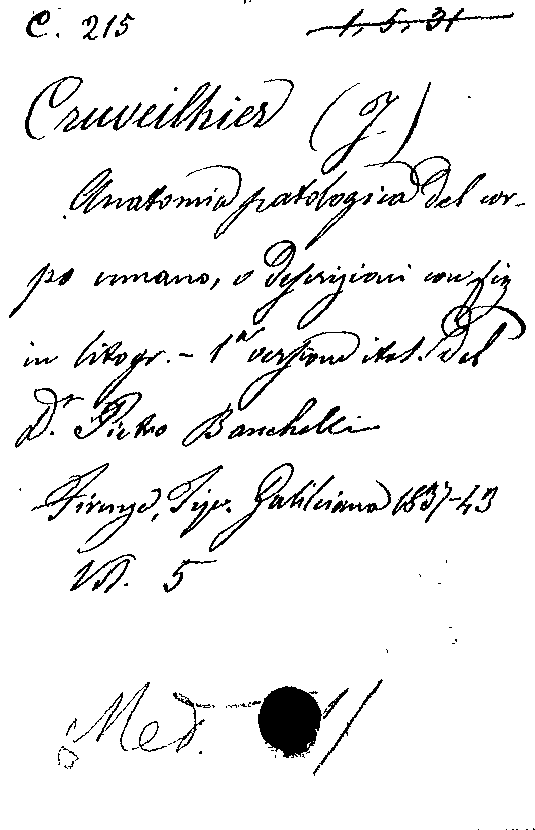 C. 215 1, 5, 31
Cruveilhier (J.)
Anatomia patologica del cor-
po umano, o descrizioni con fig
in litogr. - 1ª versione ital. del
Dr Pietro Banchelli
Firenze, Tip. Galileiana 1837-43
Vol. 5
Med.